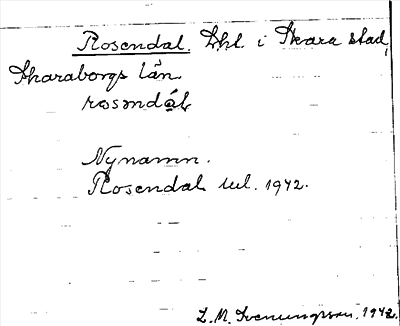 Rosendal. Lht. i Skara stad,
Skaraborgs län
rosəndɑ́l
Nynamn.
Rosendal tul. 1942.
L. M. Svenungsson, 1942.